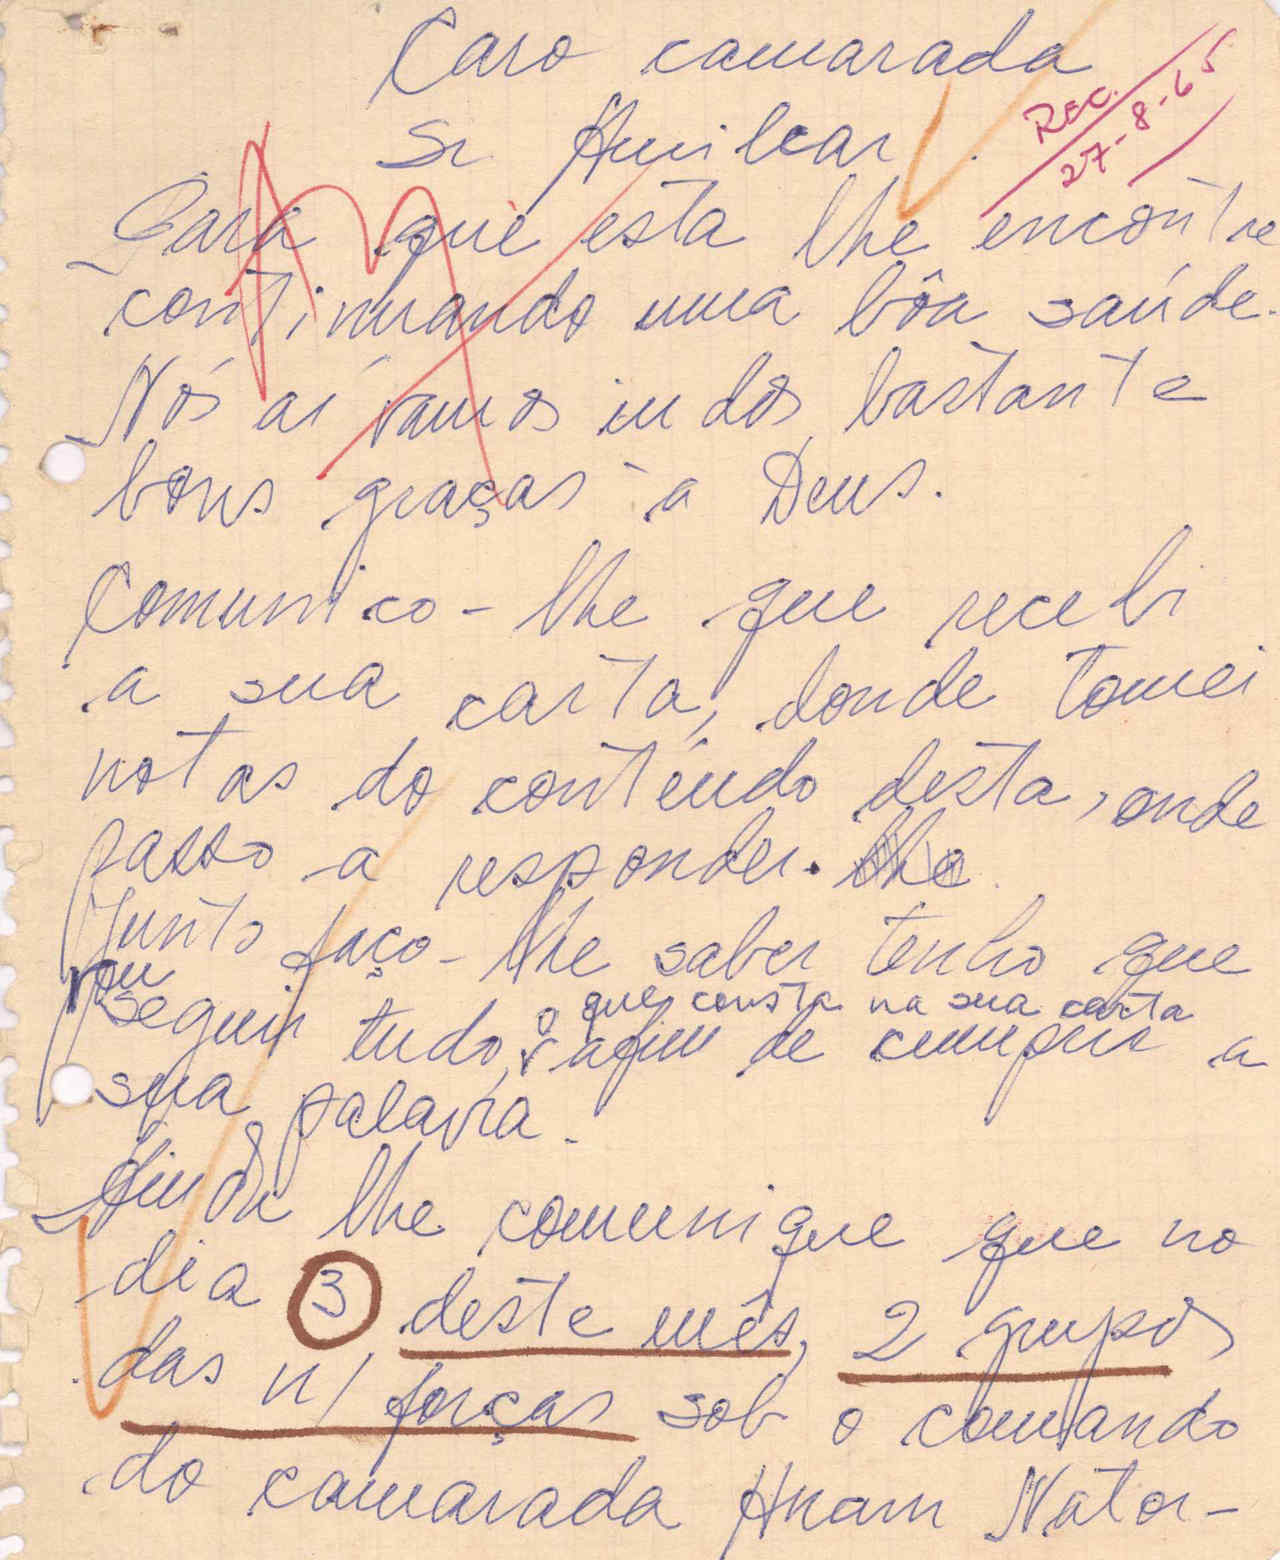 Caro camarada
Sr Amilcar
REC.
27-8-65
Para que esta lhe encontre
continuando uma bôa saúde.
Nós aí vamos indos, bastante
bons graças à Deus.
Comunico-lhe que recebi
a sua carta, donde tomei
notas do contéudo desta, onde
passo a responder. lhe
Junto faço-lhe saber tenho que
vou
o que consta na sua carta
seguir tudo, afim de cumprir a
sua palavra.
Ainda lhe comunique que no
dia 3 deste mês, 2 grupos
das n/ forças sob o comando
do camarada Hnam Nator-